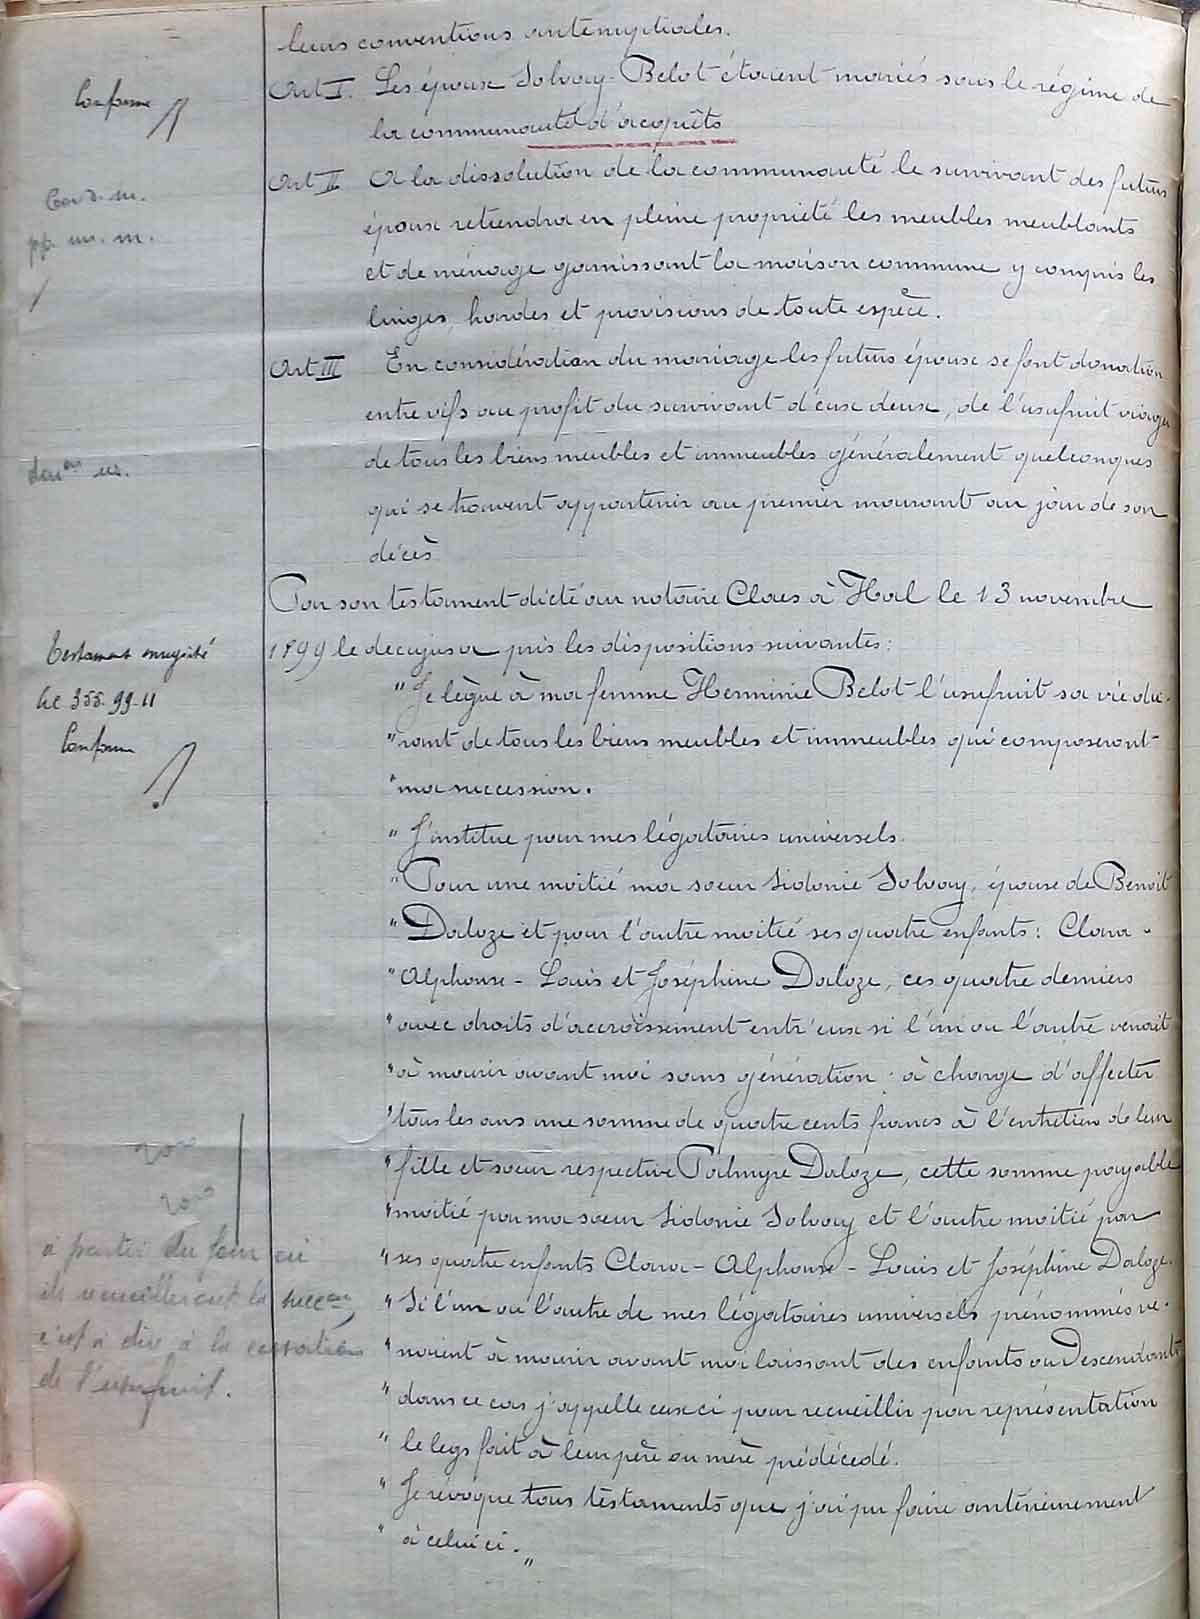 leurs conventions antenuptiales.
Conforme
Art I. Les époux Solvay-Belot étaient mariés sous le régime de
la communauté d'acquêts
Art II A la dissolution de la communauté le survivant des futurs
époux retiendra en pleine propriété les meubles meublants
et de ménage garnissant la maison commune y compris les
linges, hardes et provisions de toute espèce.
Art III En considération du mariage les futurs époux se font donation
entre vifs au profit du survivant d'eux deux, de l'usufruit viager
de tous les biens meubles et immeubles généralement quelconques
qui se trouvent appartenir au premier mourant au jour de son
décès
Par son testament dicté au notaire Claes à Hal le 13 novembre
Testament enregistré
1899 le decujus a pris les dispositions suivantes:
"Je lègue à ma femme Herminie Belot l'usufruit sa vie du-
355. 99-11
Conforme
"rant de tous les biens meubles et immeubles qui composeront
"ma succession.
"J'institue pour mes légataires universels.
"Pour une moitié ma soeur Sidonie Solvay, épouse de Benoit
"Daloze et pour l'autre moitié ses quatre enfants: Clara-
"Alphonse-Louis et Joséphine Daloze, ces quatre derniers
"avec droits d'accroissement entr'eux si l'un ou l'autre venait
"à mourir avant moi sans génération: à charge d'affecter
"tous les ans une somme de quatre cents francs à l'entretien de leur
"fille et soeur respective Palmyre Daloze, cette somme payable
"moitié par ma soeur Sidonie Solvay et l'autre moitié par
"ses quatre enfants Clara-Alphonse-Louis et Joséphine Daloze.
à partir du jour où
ils recueilleront la succon,
c'est à dire à la cessation
de l'usufruit.
"Si l'un ou l'autre de mes légataires universels prénommés ve-
"naient à mourir avant moi laissant des enfants ou Descendants
"dans ce cas j'appelle ceux ci pour recueillir par représentation
"le legs fait à leur père ou mère prédécédé.
"Je révoque tous testaments que j'ai pu faire antérieurement
"à celui ci."